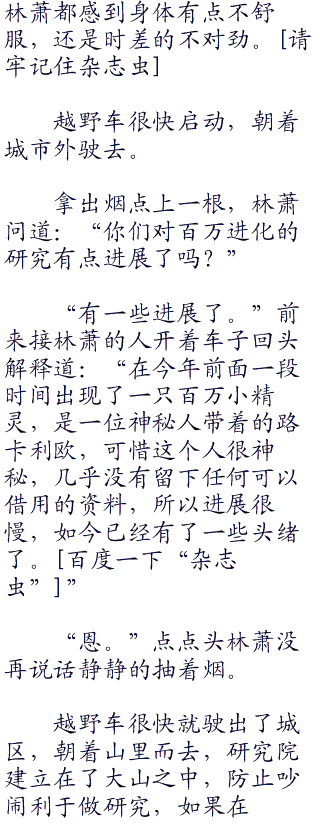 林萧都感到身体有点不舒
服，还是时差的不对劲。[请
牢记住杂志虫]
越野车很快启动，朝着
城市外驶去。
拿出烟点上一根，林萧
问道：“你们对百万进化的
研究有点进展了吗？”
“有一些进展了。”前
来接林萧的人开着车子回头
解释道：“在今年前面一段
时间出现了一只百万小精
灵，是一位神秘人带着的路
卡利欧，可惜这个人很神
秘，几乎没有留下任何可以
借用的资料，所以进展很
慢，如今已经有了一些头绪
了。[百度一下“杂志
虫”]”
“恩。”点点头林萧没
再说话静静的抽着烟。
越野车很快就驶出了城
区，朝着山里而去，研究院
建立在了大山之中，防止吵
闹利于做研究，如果在